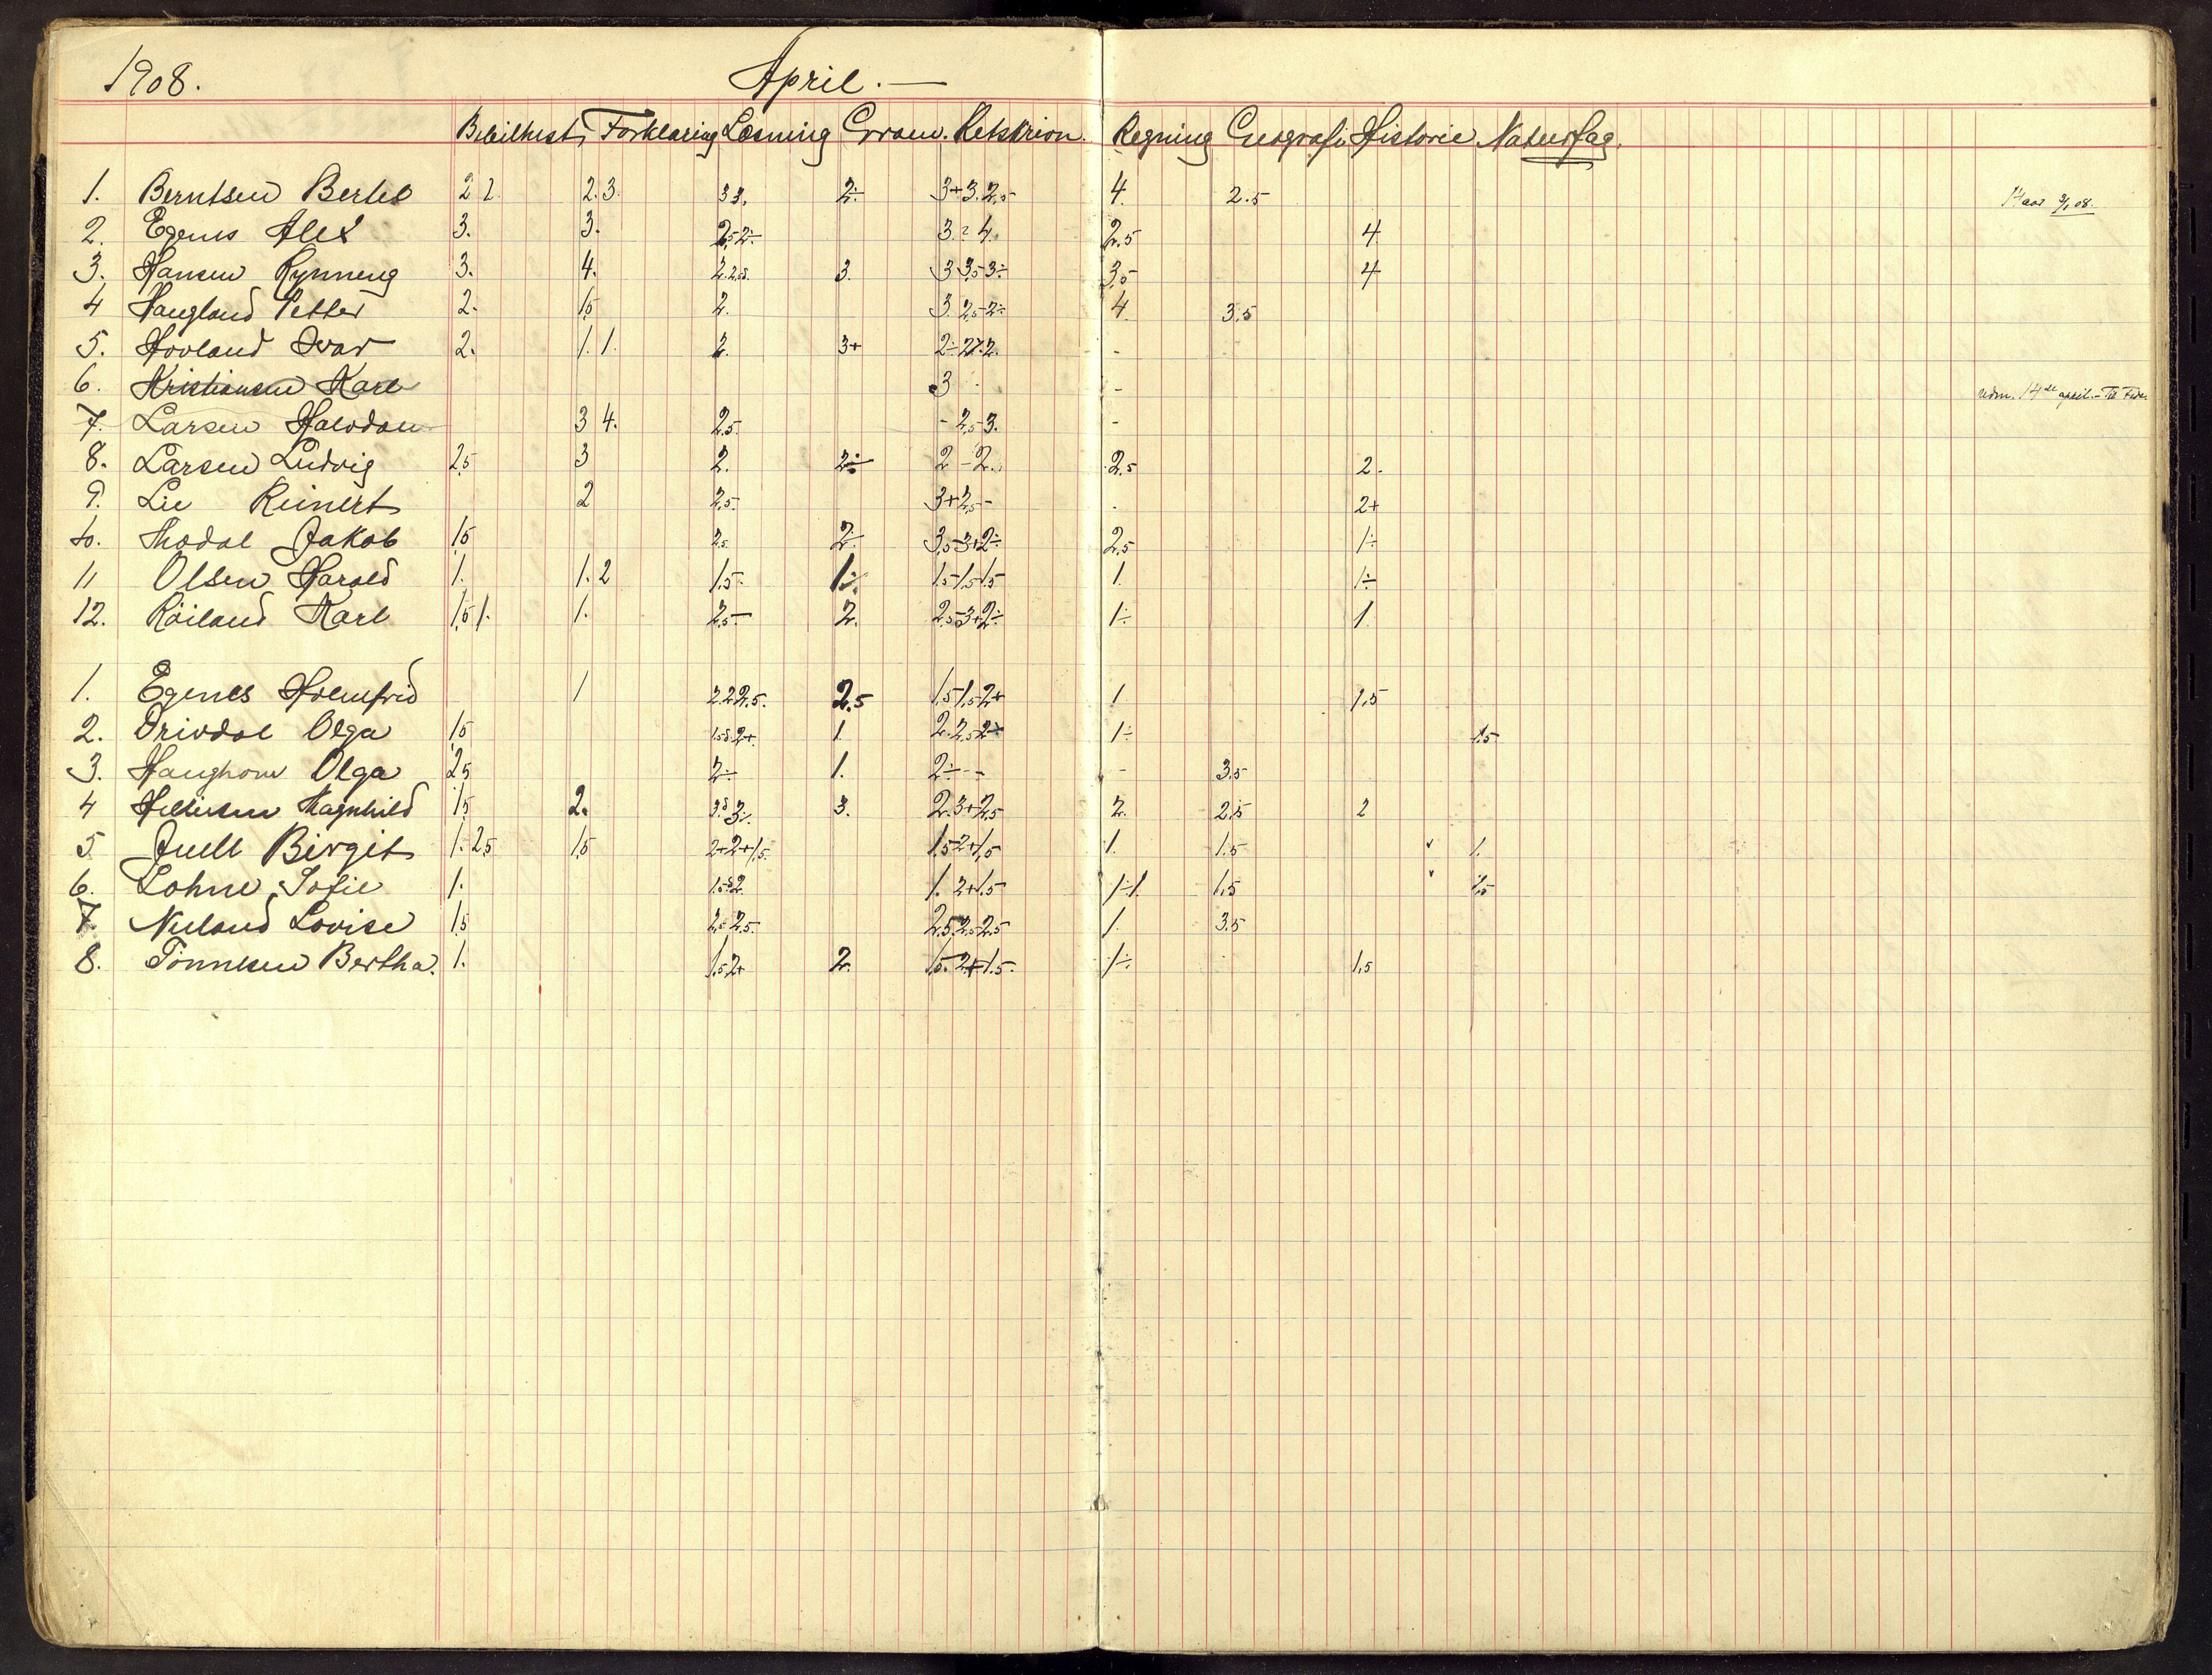 1908. April. —
Bibilhist. Forklaring Læsning Gram. Retskrivn. Regning Geografi Historie Naturfag.
1. Berntsen Bertel 2 2. 2.3. 3 3. 2÷ 3+3.2,5 4. 2.5
2. Egenes Alex 3. 3. 2,5 2÷ 3.2 4. 2.5 4
3. Hansen Rynning 3. 4. 3. 3 3,5 3÷ 3,5 4
4 Haugland Petter 2. 1,5 2. 3. 2,5 2÷ 4. 3.5
5. Hovland Ivar 2. 1. 1. 2. 3+ -
6. Kristiansen Karl 3 - - udm. 14de april. - Til
7. Larsen Halvdan 3 4. 2.5. - 2,5 3. -
8. Larsen Ludvig 2,5 3 2. 2÷ 2 - 2. 2,5 2.
9. Lie Reinert 2 2,5. 3+2,5 - 2+
10. Modal Jakob 1,5 2,5. 2÷ 3,5 3+2÷ 2,5 1÷
11 Olsen Harald 1. 1. 2 1,5. 1÷ 1,5 1,5 1,5 1. 1÷
12. Röiland Karl 1,5 1. 1. 2,5- 2. 2,5 3+2÷ 1÷ 1.
1. Egenes Holmfrid 1 2.2 2,5. 2,5 1,5 1,5 2+ 1 1,5
2. Drivdal Olga 1,5 1. 2.2,5 2+ 1÷ 1.5
3. Haughom Olga 2,5 2÷ 1. 2÷ - - - 3.5
4 Hellesen Magnhild 1,5 2. 3. 2.3+2,5 2. 2.5 2
5 Juell Birgit 1. 2,5 1,5 2+2+1,5. 1,5 2+1,5 1. 1.5 1.
6. Lohne Sofie 1. 1. 2+1.5 1÷1. 1.5 1,5
7. Nuland Lovise 1,5 2,5 2,5. 2,5 2,5 2,5 1. 3.5
8. Tönnesen Bertha. 1. 1,5 2+ 2. 1,5. 2+1.5. 1÷ 1,5